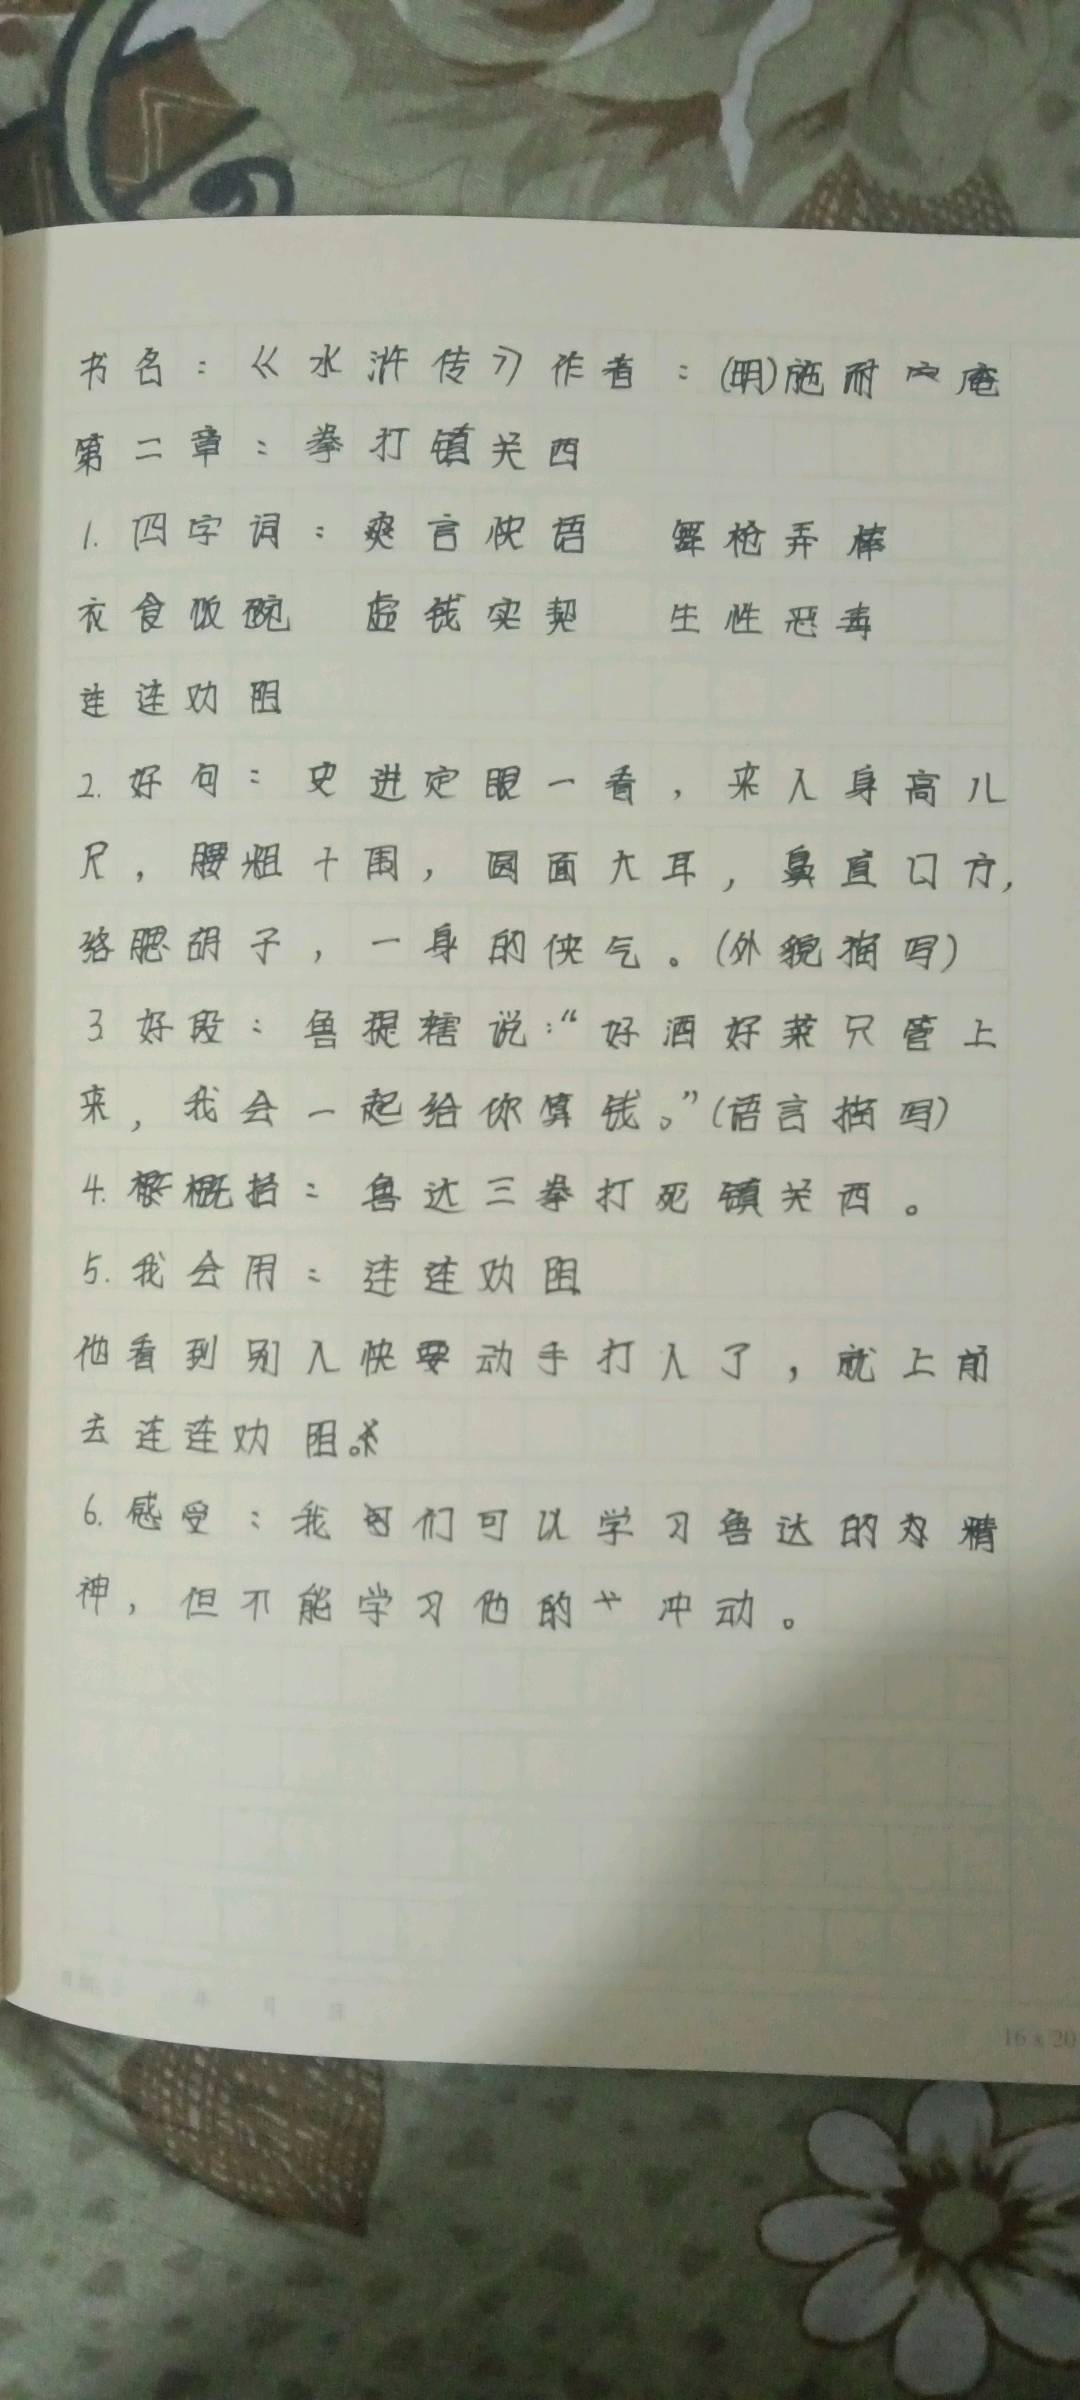 书名：《水浒传》作者：(明)施耐庵
第二章：拳打镇关西
1. 四字词：爽言快语 舞枪弄棒
衣食饭碗 虚钱实契 生性恶毒
连连劝阻
2. 好句：史进定眼一看，来人身高八
尺，腰粗十围，圆面大耳，鼻直口方，
络腮胡子，一身的侠气。(外貌描写)
3 好段：鲁提辖说：“好酒好菜只管上
来，我会一起给你算钱。”(语言描写)
4. 概括：鲁达三拳打死镇关西。
5. 我会用：连连劝阻
他看到别人快要动手打人了，就上前
去连连劝阻。
6. 感受：我们可以学习鲁达的精
神，但不能学习他的冲动。
年 月 日
16 x 20